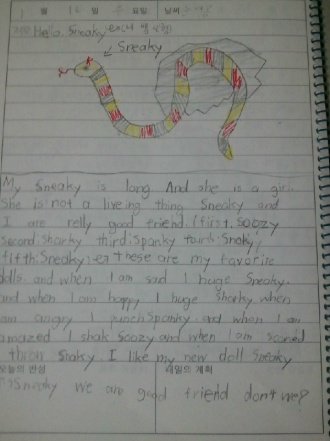 월 일 요일 날씨
Hello. Sneaky
Sneaky
My Sneaky is long. And she is a girl.
She is not a liveing thing Sneaky and
I are relly good friend. (first. Soozy
second: sharky third: spanky fourth: Snaky
fifth: Sneaky) these are my favorite
dolls. and when I am sad I huge Sneaky.
and when I am happy I huge sharky. when
am angry I punch spanky. and when I am
amazed I shak Soozy and when I am scared
thron Snaky. I like my new doll Sneaky
오늘의 반성 내일의 계획
Sneaky we are good friend don't we?